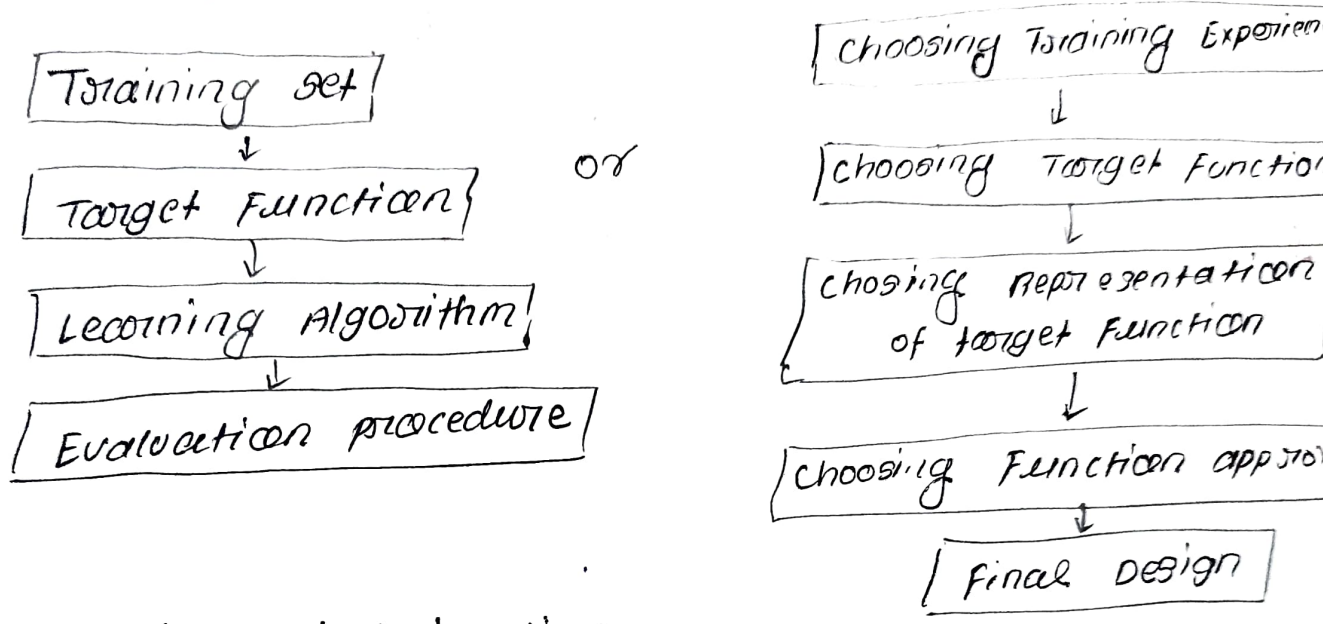 Training set
Target Function
Learning Algorithm
Evaluation procedure
or
Choosing Training Experien
Choosing Target Function
Chosing Representation
of target Function
Choosing Function appro
Final Design